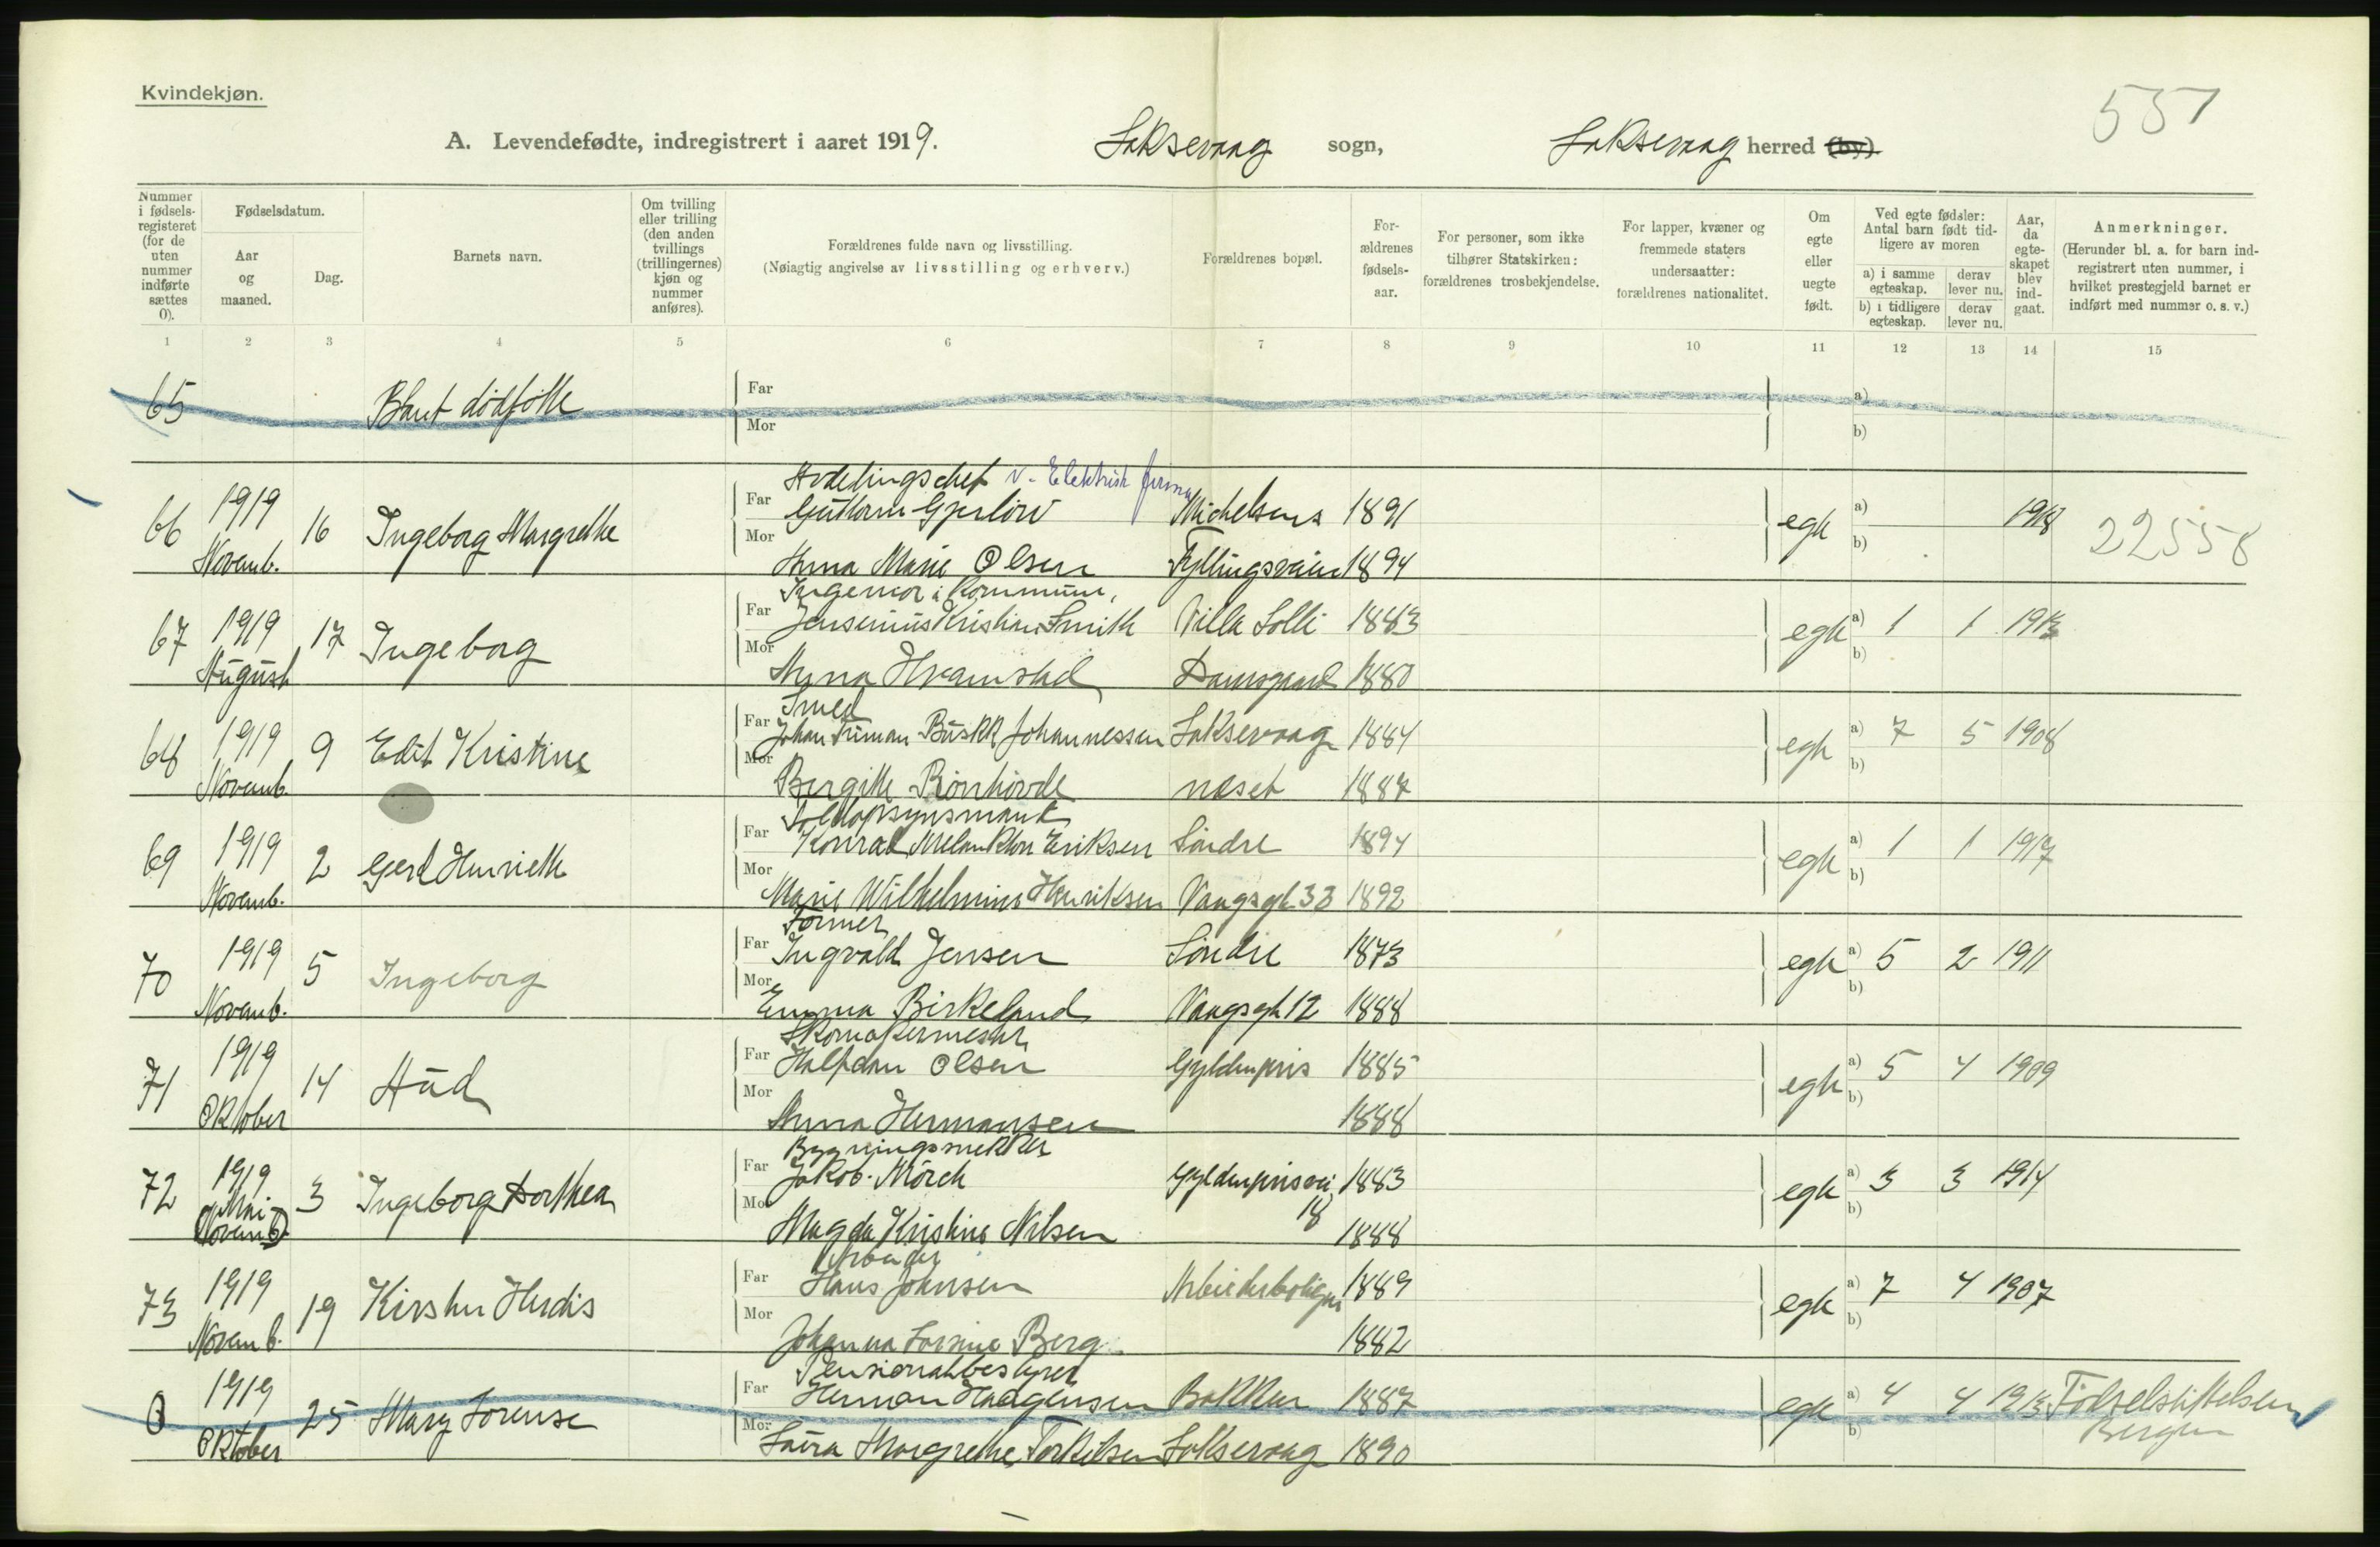 Kvindekjøn.
551
A. Levendefødte, indregistrert i aaret 1919. Laksevaag sogn, Laksevaag herred (by)
Nummer i fødsels-registeret (for de uten nummer indførte sættes 0).
Fødselsdatum.
Aar og maaned.
Dag.
Barnets navn.
Om tvilling eller trilling (den anden tvillings (trillingernes) kjøn og nummer anføres).
Forældrenes fulde navn og livsstilling.
(Nøiagtig angivelse av livsstilling og erhverv.)
Forældrenes bopæl.
For-ældrenes fødsels-aar.
For personer, som ikke tilhører Statskirken: forældrenes trosbekjendelse.
For lapper, kvæner og fremmede staters undersaatter: forældrenes nationalitet.
Om egte eller uegte født.
Ved egte fødsler: Antal barn født tid-ligere av moren
a) i samme egteskap. derav lever nu.
b) i tidligere egteskap. derav lever nu.
Aar, da egte-skapet blev ind-gaat.
Anmerkninger.
(Herunder bl. a. for barn ind-registrert uten nummer, i hvilket prestegjeld barnet er indført med nummer o. s. v.)
1 2 3 4 5 6 7 8 9 10 11 12 13 14 15
65 Blant dödfötte Far a)
Mor b)
Avdelingschef v. Elektrisk firma
66 1919 16 Ingeborg Margrethe Far Guttorm Gjerlöw Michelsens 1891 egte a) 1918 22558
Novemb. Mor Anna Marie Olsen Fyllingsveien 1894 b)
Ingeniör i Kommunen,
67 1919 17 Ingeborg Far Jensenius Kristian Smith Villa Solli 1883 egte a) 1 1 1913
August Mor Anna Hramstad Damsgaard 1880 b)
Smed
68 1919 9 Edit Kristine Far Johan Buskk Johannessen Laksevaag 1884 egte a) 7 5 1908
Novemb. Mor Bergitte Rönhovde næset 1887 b)
Toldopsynsmand
69 1919 2 Gerd Henriette Far Konrad Melankton Eriksen Söndre 1894 egte a) 1 1 1917
Novemb. Mor Marie Wilhelmine Henriksen Vaagsgt 33 1892 b)
Former
70 1919 5 Ingeborg Far Ingvald Jensen Söndre 1873 egte a) 5 2 1911
Novemb. Mor Emma Birkeland Vaagsgt 12 1888 b)
Skomakermester
71 1919 14 Aud Far Halfdan Olsen Gyldenpris 1885 egte a) 5 4 1909
Oktober Mor Anna Hermansen 1888 b)
Bygningssnekker
72 1919 3 Ingeborg Dorthea Far Jakob Mörch Gyldenprisvei 1883 egte a) 3 3 1914
Mai (Novemb) Mor Magda Kristine Nilsen 18 1888 b)
Arbeider
73 1919 19 Kirsten Herdis Far Hans Johnsen Arbeiderboligen 1889 egte a) 7 4 1907
Novemb. Mor Johanna Lovine Berg 1882 b)
Pensionatbestyrer
0 1919 25 Mary Lorense Far Herman Haagensen Bakken 1887 egte a) 4 4 1913 Födselsstiftelsen
Oktober Mor Laura Margrethe Torkilsen Laksevaag 1890 b) Bergen